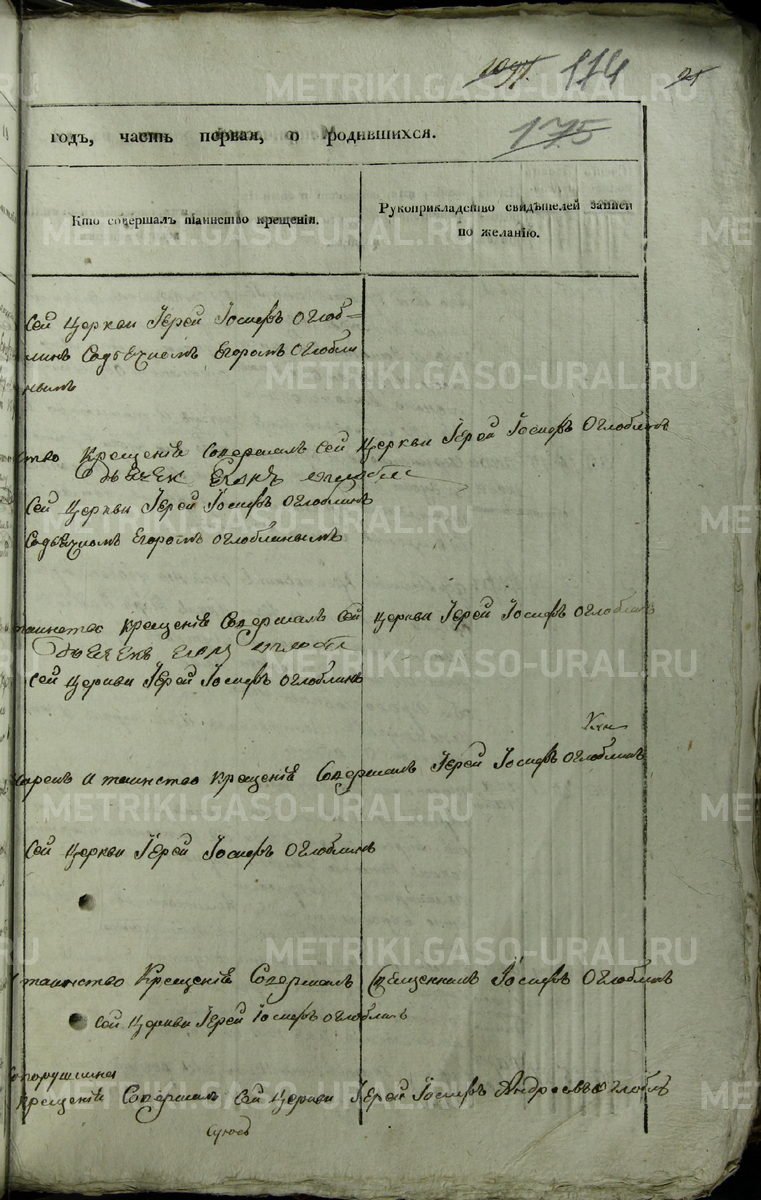 114
175
METRIKI.GASO-URAL.RU
годъ, часть первая, о родившихся.
Кто совершалъ таинство крещенія.
Рукоприкладство свидѣтелей записи по желанію.
Сей Церкви Іерей Іосифъ Оглоб-
линъ Егоромъ Оглобли
нымъ
ство крещенія Совершалъ Сей Церкви Іерей Іосифъ Оглоблинъ
Сей Церкви Іерей Іосифъ Оглоблинъ
Егоромъ Оглоблинымъ
таинство крещенія Совершалъ Сей Церкви Іерей Іосифъ Оглоблинъ
Сей Церкви Іерей Іосифъ Оглоблинъ
и таинство крещенія Совершалъ Іерей Іосифъ Оглоблинъ
Сей Церкви Іерей Іосифъ Оглоблинъ
таинство Крещенія Совершалъ Священникъ Іосифъ Оглоблинъ
Сей Церкви Іерей Іосифъ Оглоблинъ
крещеніи Совершалъ Сей Церкви Іерей Іосифъ